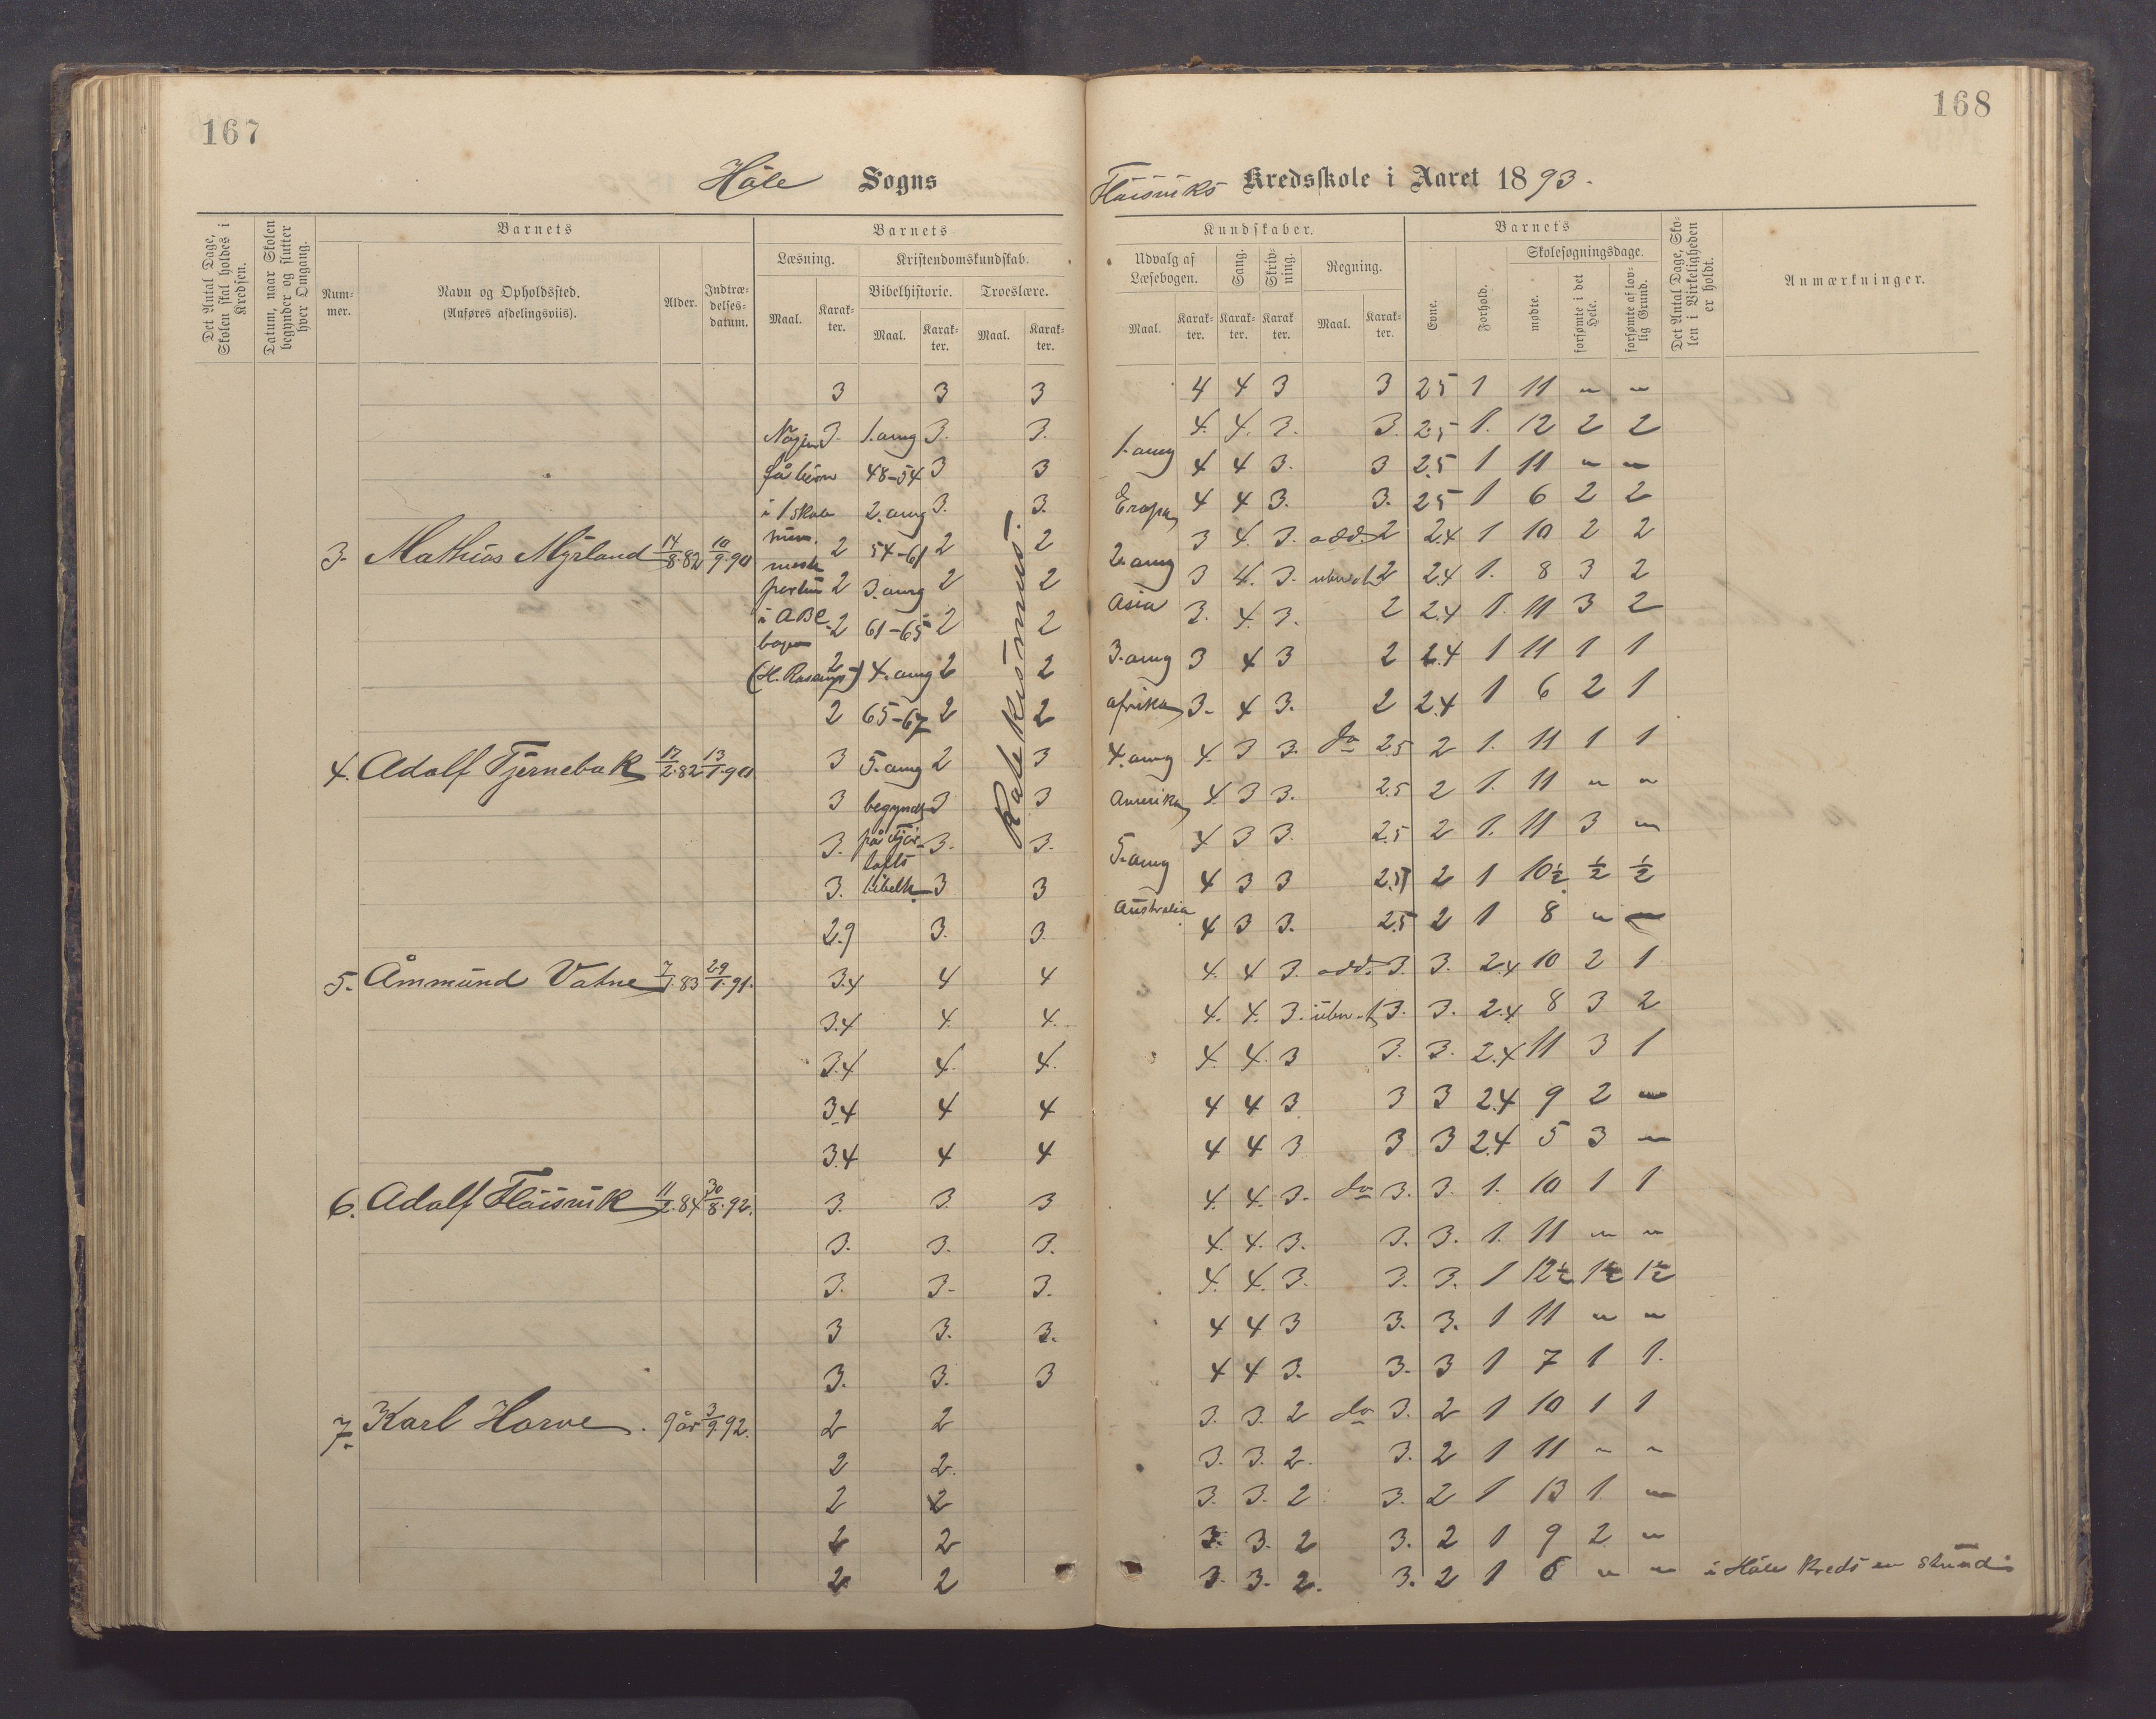 167
168
Håle Sogns
Fløisviks Kredsskole i Aaret 1893.
Det Antal Dage, Skolen skal holdes i Kredsen.
Datum, naar Skolen begynder og slutter hver Omgang.
Barnets
Num-mer.
Navn og Opholdssted.
(Anføres afdelingsviis).
Alder.
Indtræ-delses-datum.
Barnets
Læsning.
Maal.
Karak-ter.
Kristendomskundskab.
Bibelhistorie.
Maal.
Karak-ter.
Troeslære.
Maal.
Karak-ter.
Kundskaber.
Udvalg af Læsebogen.
Maal.
Karak-ter.
Sang.
Karak-ter.
Skriv-ning.
Karak-ter.
Regning.
Maal.
Karak-ter.
Barnets
Evne.
Forhold.
Skolesøgningsdage.
mødte.
forsømte i det Hele.
forsømte af lov-lig Grund.
Det Antal Dage, Sko-len i Virkeligheden er holdt.
Anmærkninger.
3 3 3 4 4 3 3 2.5 1 11 " "
3. 1. omg 3. 3. 1. omg 4. 4. 3. 3. 2.5 1. 12 2 2
få børn 48-54 3 3 4 4 3. 3 2.5 1 11 " "
i 1 skole 2. omg 3. 3. Eropa 4 4 3. 3. 2.5 1 6 2 2
3. Mathias Myrland 14/8.82 10/9.90 2 54-61 2 2 2. omg 3 4. 3. add. 2 2.4 1 10 2 2
2 3. omg 2 2 Asia 3 4. 3. 2 2.4 1. 8 3 2
i ABC 2 61-65 2 2 3. 4. 3. 2 2.4 1. 11 3 2
2 4. omg 2 2 3. omg 3 4 3 2 2.4 1 11 1 1
2 65-67 2 2 afrika 3. 4 3. 2 2.4 1 6 2 1
Katekismus.
4. Adolf Tjernebak 17/2.82 13/1.90 3 5. omg 2 3 4. omg 4. 3 3. do 2.5 2 1. 11 1 1
3 begyndt 3 3 Amerika 4. 3 3. 2.5 2 1. 11 " "
3. på 3. 3. 5. omg 4 3 3. 2.5 2 1. 11 3 "
3. bibelh. 3 3 4 3 3 2.5 2 1 10½ ½ ½
2.9 3. 3. Australia 4 3 3. 2.5 2 1 8 " "
5. Åmmund Vatne 7/1.83 29/1.91. 3.4 4 4 4. 4 3. add. 3. 3. 2.4 10 2 1
3.4 4. 4. 4. 4. 3. 3. 3. 2.4 8 3 2
3.4 4. 4. 4. 4. 3 3. 3. 2.4 11 3 1
3.4 4 4 4 4 3 3 3 2.4 9 2 "
3.4 4 4 4 4 3 3 3 2.4 5 3 "
6. Adolf Fløisvik 11/2.84 30/8.92. 3. 3. 3 4. 4. 3. do 3. 3. 1. 10 1 1
3. 3. 3. 4. 4. 3. 3. 3. 1. 11 " "
3. 3. 3. 4. 4. 3. 3. 3. 1 12½ 1½ 1½
3 3. 3. 4 4 3 3. 3. 1 11 " "
3. 3. 3 4 4 3. 3. 3 1 7 1 1.
7. Karl Horve. 9 år 3/9.92. 2 2 3. 3. 2 do 3. 2 1 10 1 1
2 2. 3. 3. 2. 3. 2 1 11 " "
2 2 3. 3. 2 3. 2 1 13 1. "
2 2 3. 3. 2 3. 2 1 9 2 "
2 2 3. 3. 2. 3. 2 1 6 " " i Håle Kreds en stund.